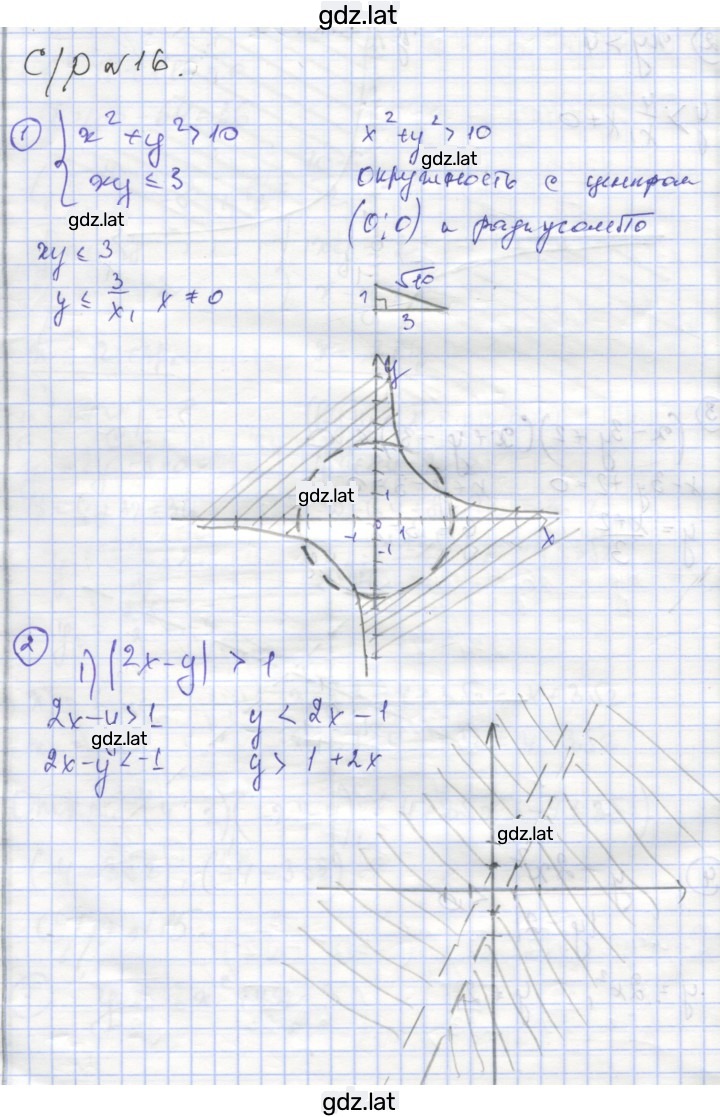 gdz.lat
С/р №16.
1) { x² + y² > 10
xy ≤ 3
gdz.lat
x² + y² > 10
gdz.lat
окружность с центром
(0; 0) и радиусом √10
xy ≤ 3
y ≤ 3/x, x ≠ 0
√10
1
3
y
gdz.lat
1
-1 0 1
-1
x
2) 1) |2x - y| > 1
2x - y > 1 y < 2x - 1
gdz.lat
2x - y < -1 y > 1 + 2x
gdz.lat
gdz.lat